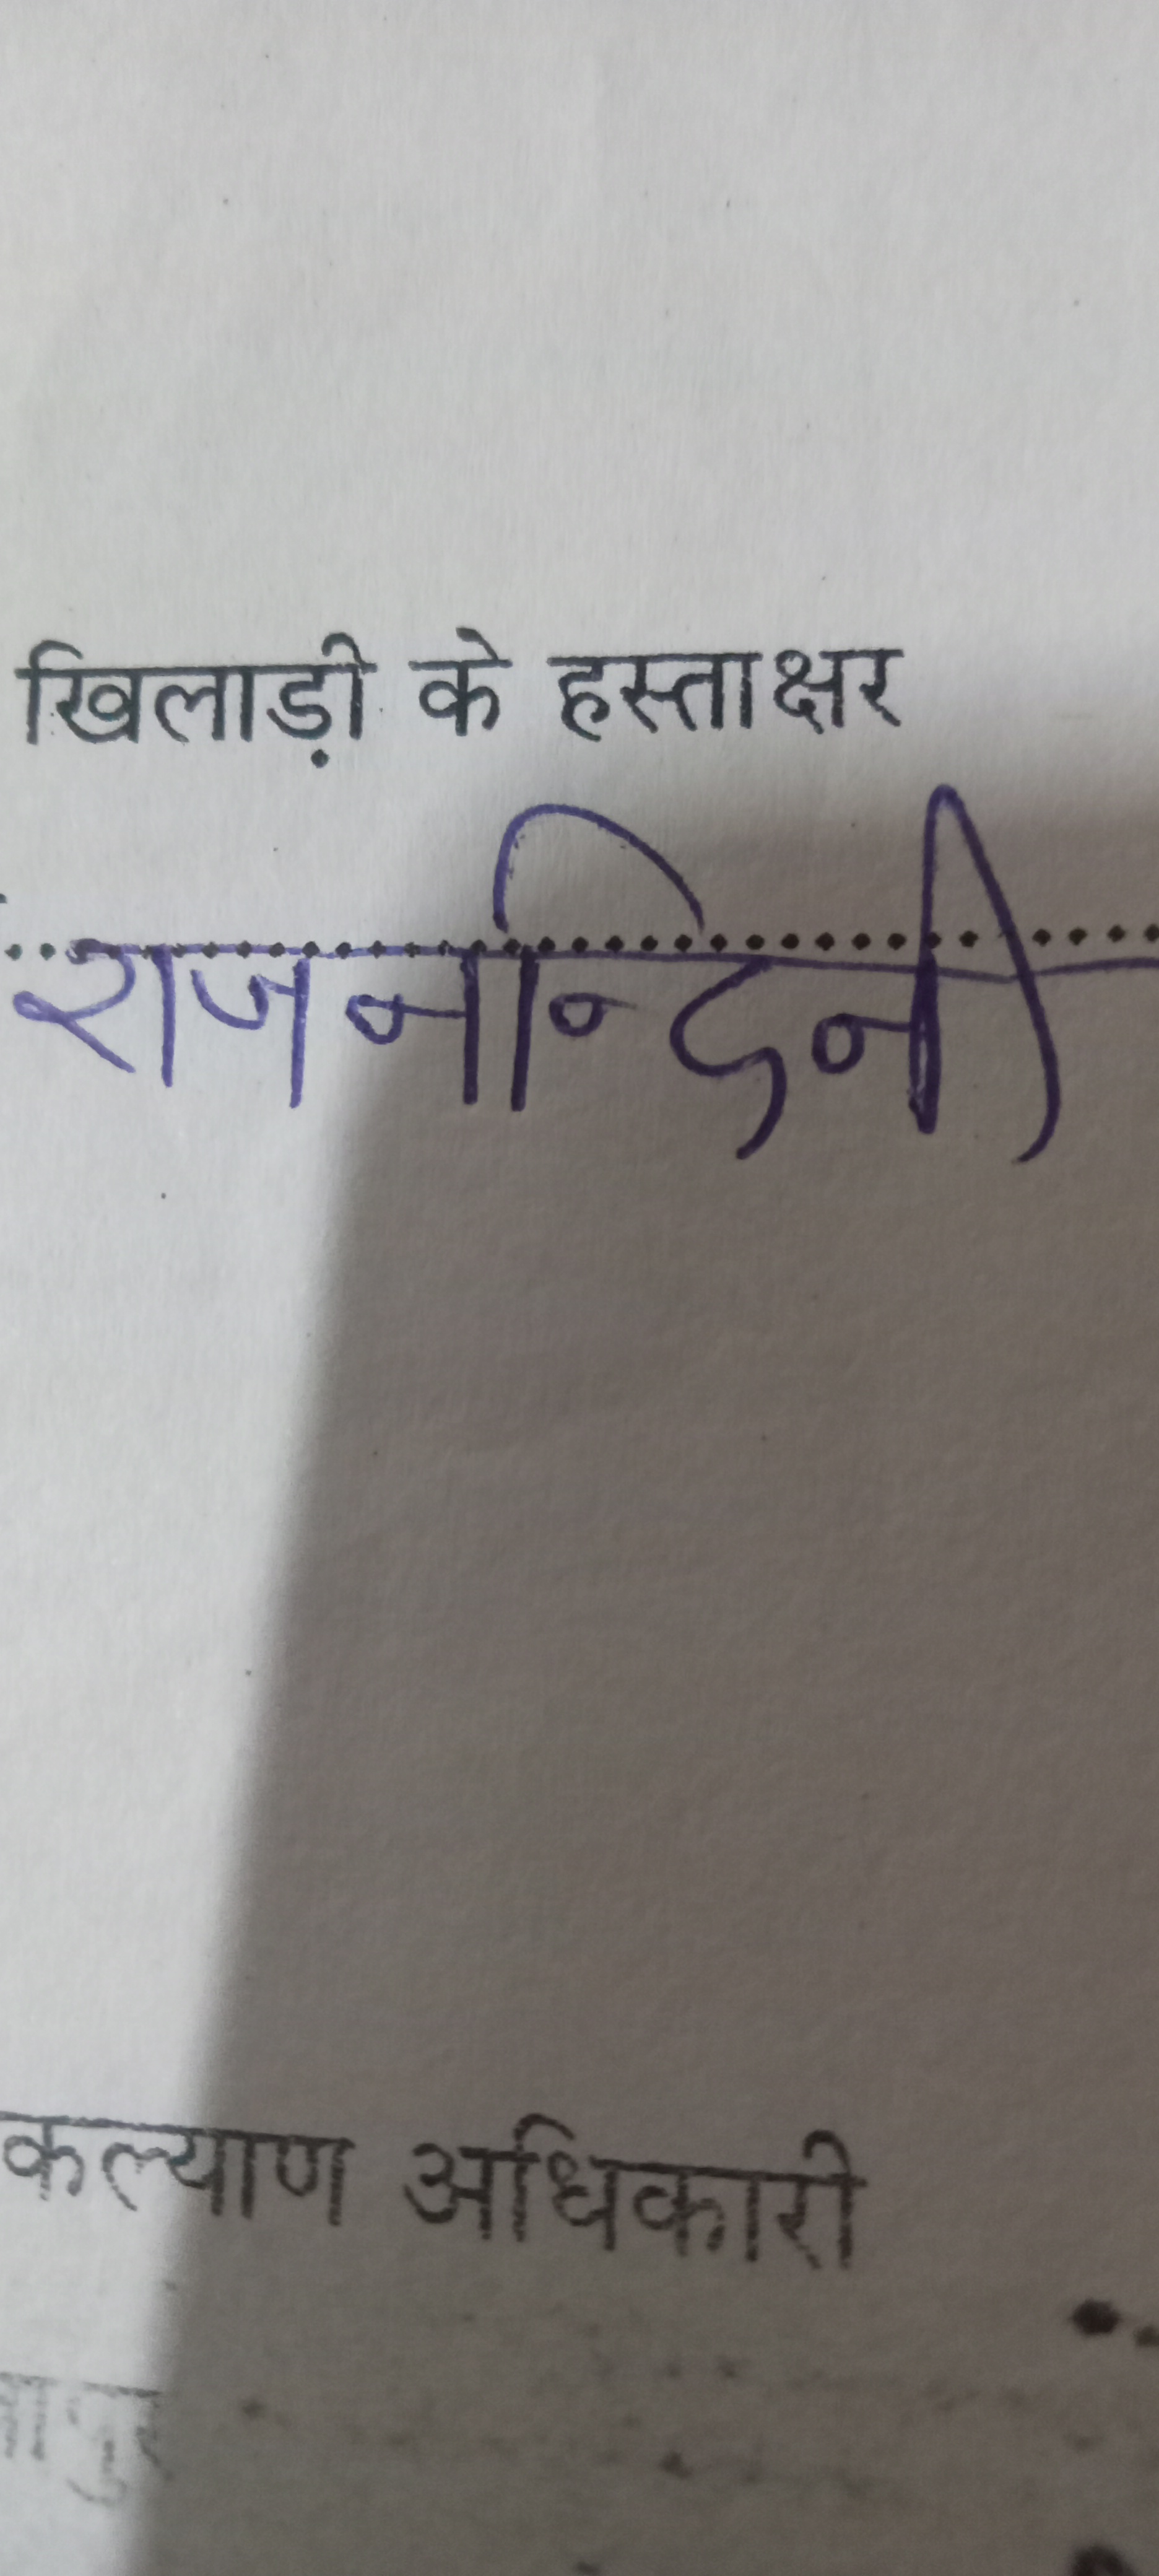 खिलाड़ी के हस्ताक्षर
राजनन्दिनी
कल्याण अधिकारी